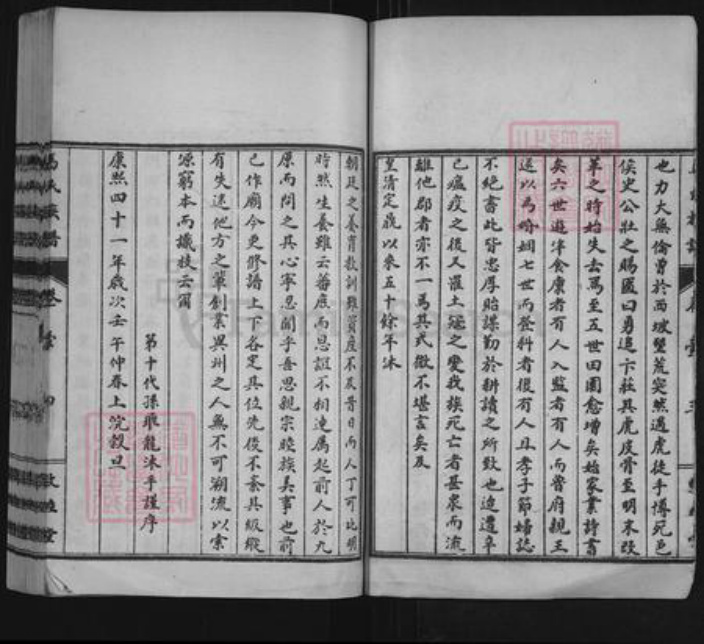 也力大無倫曾於西坡墾荒突然遇虎徒手博死邑
侯史公壯之賜匾曰勇追卞莊其虎皮骨至明末改
革之時始失去焉至五世田園愈增矣始家業詩書
矣六世遊泮食廩者有人入監者有人而晉府親王
遂以為婚姻七世而登科者復有人且孝子節婦誌
不絕書此皆忠厚貽謀勤於耕讀之所致也迨遭阜
已瘟疫之後又罹土之變我族死亡者甚衆而流
離他郡者亦不一焉其式微不堪言矣及
皇清定鼎以來五十餘年沐
朝廷之養育教訓雖資產不及昔日而人丁可比明
時然生養雖云蕃庶而恩誼不相連屬起前人於九
原而問之其心寧忍聞乎吾思親宗睦族美事也前
已作廟今更修譜上下各定其位先後不紊其級縱
有失迷他方之輩創業異州之人無不可溯流以索
源窮本而識枝云爾
第十代孫 龍沐手謹序
康熙四十一年歲次壬午仲春上浣穀旦
氏族譜
敦睦堂